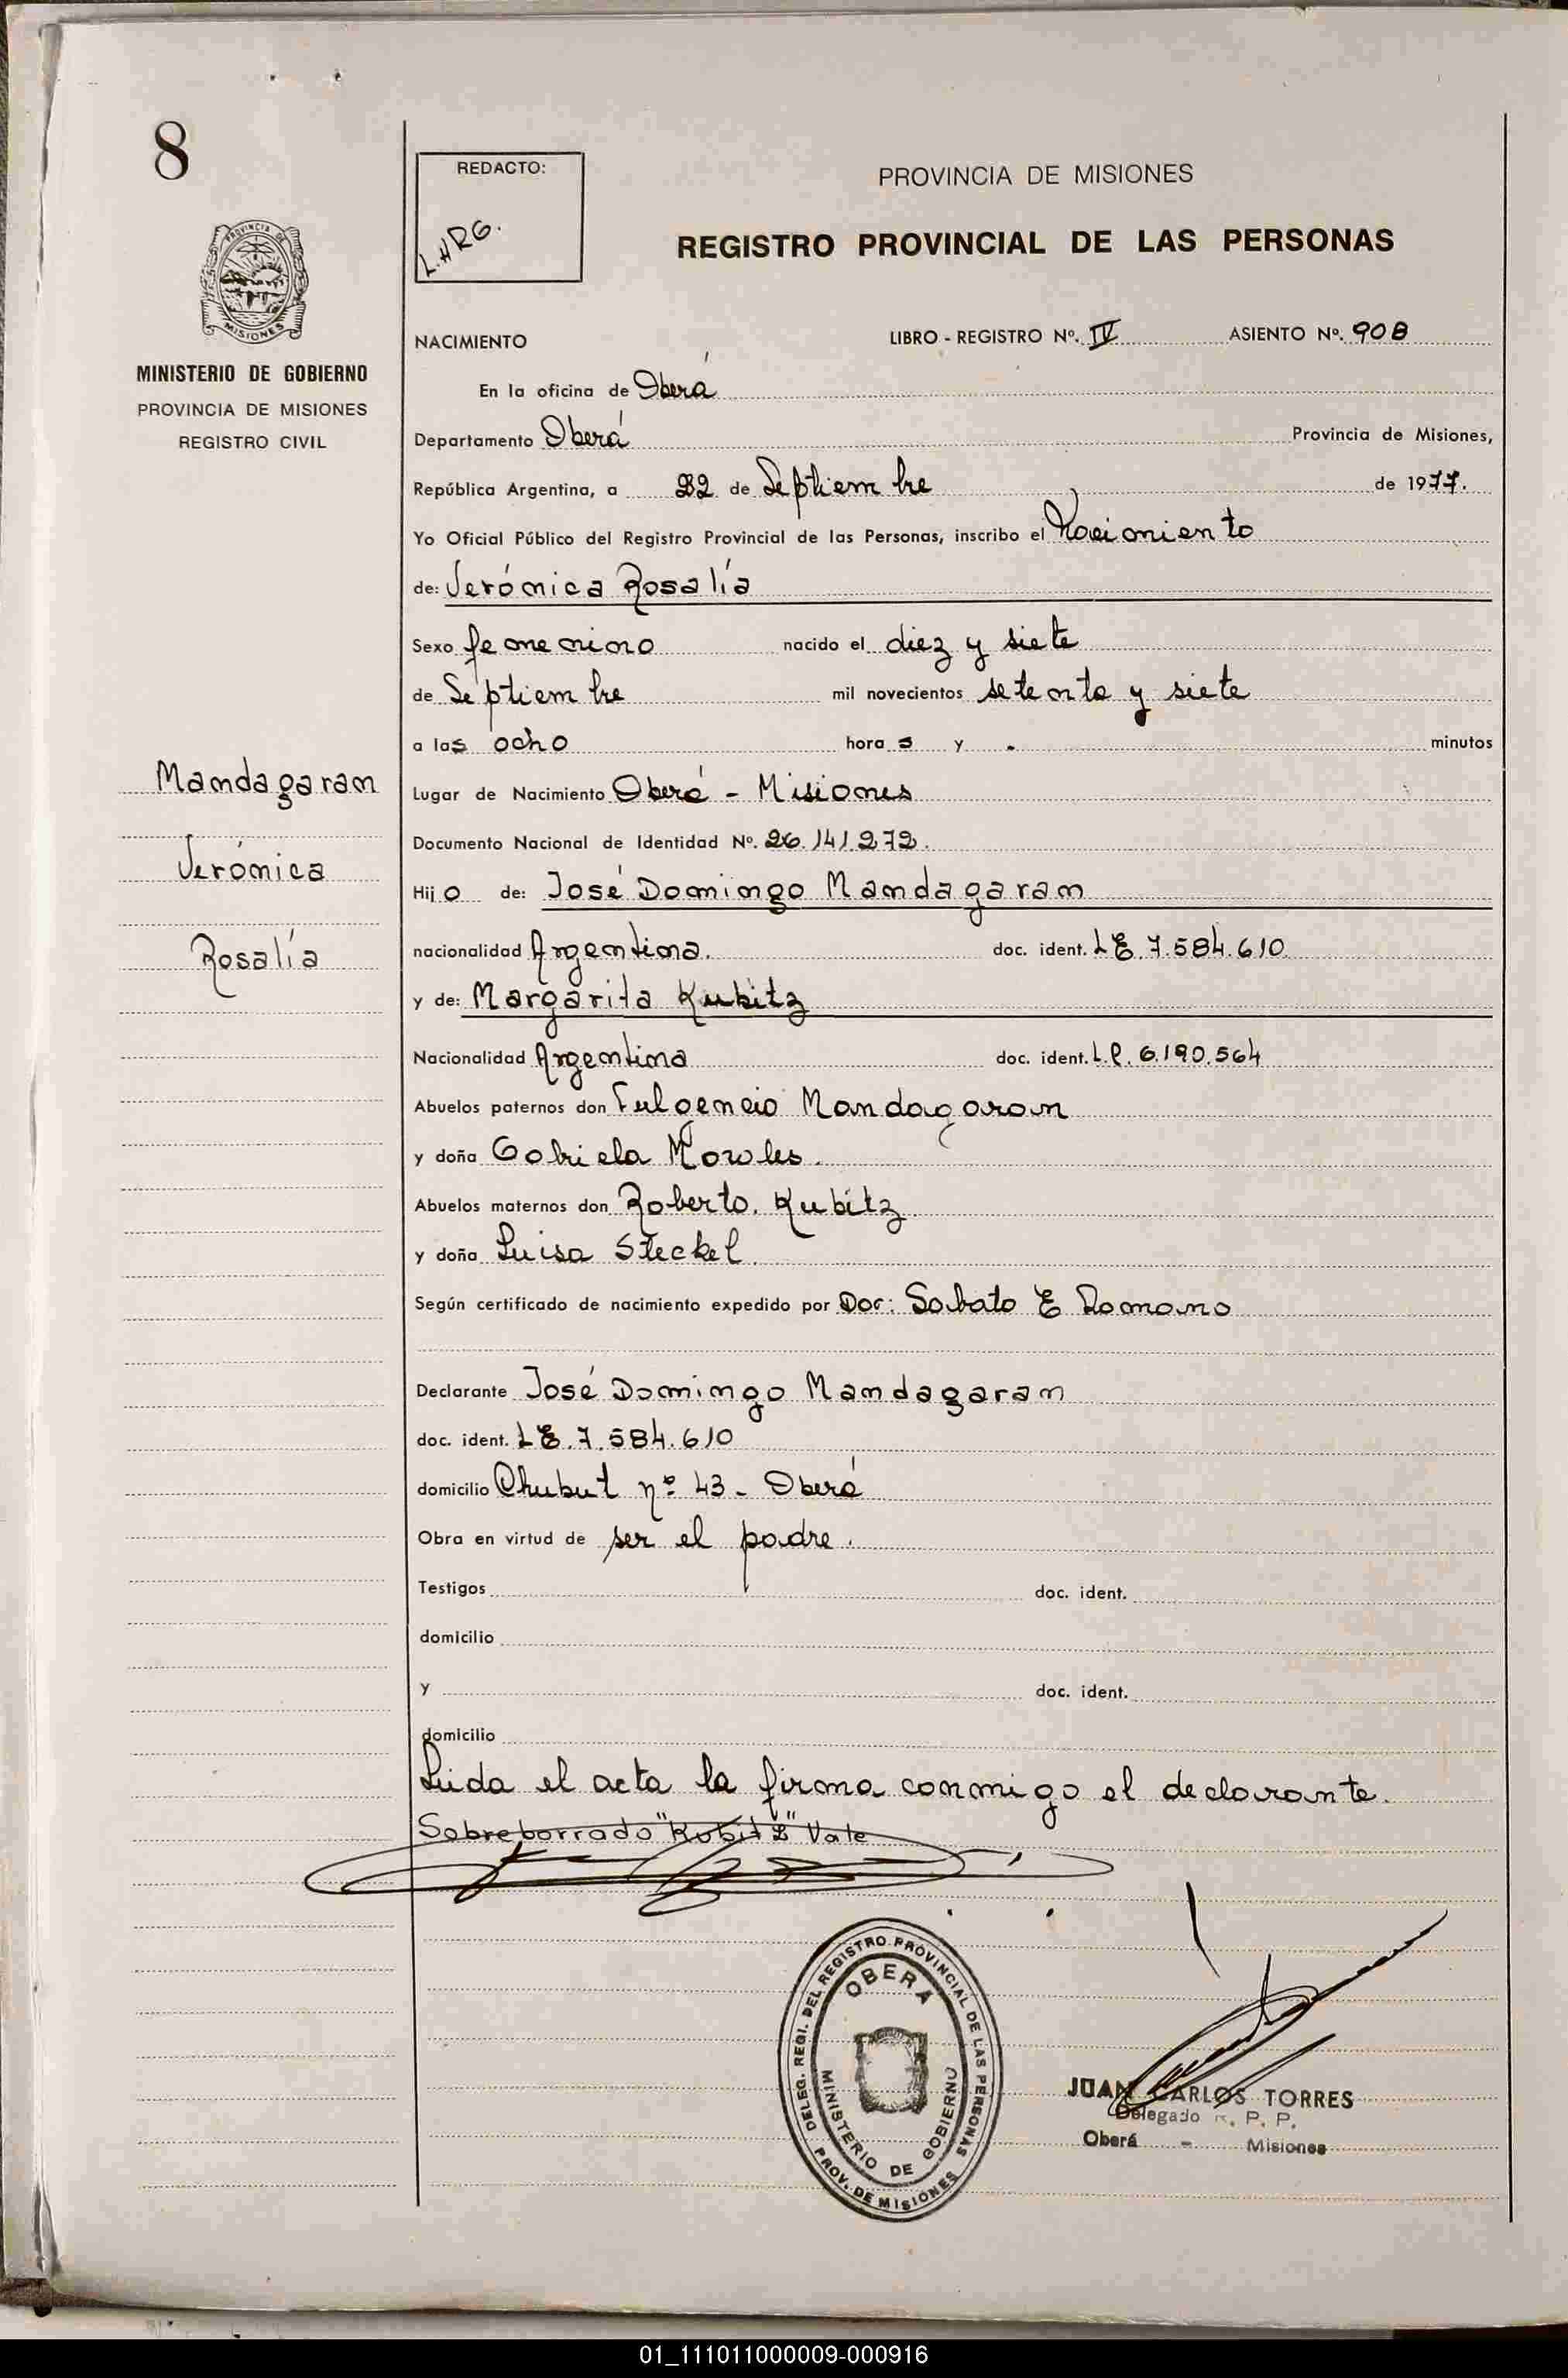 8
REDACTO:
L.HRG.
PROVINCIA DE MISIONES
REGISTRO PROVINCIAL DE LAS PERSONAS
PROVINCIA DE
MISIONES
MINISTERIO DE GOBIERNO
PROVINCIA DE MISIONES
REGISTRO CIVIL
NACIMIENTO LIBRO - REGISTRO Nº. IV ASIENTO Nº. 908
En la oficina de Oberá
Departamento Oberá Provincia de Misiones,
República Argentina, a 22 de Septiembre de 1977.
Yo Oficial Público del Registro Provincial de las Personas, inscribo el Nacimiento
de: Verónica Rosalía
Sexo femenino nacido el diez y siete
de Septiembre mil novecientos setenta y siete
a las ocho horas y - minutos
Mandagaran
Verónica
Rosalía
Lugar de Nacimiento Oberá - Misiones
Documento Nacional de Identidad Nº. 26.141.272.
Hijo de: José Domingo Mandagaran
nacionalidad Argentina. doc. ident. LE. 7.584.610
y de: Margarita Kubitz
Nacionalidad Argentina doc. ident. L.C. 6.190.564
Abuelos paternos don Fulgencio Mandagaran
y doña Gabriela
Abuelos maternos don Roberto. Kubitz
y doña Luisa Steckel.
Según certificado de nacimiento expedido por Doc: Sabato E Romano
Declarante José Domingo Mandagaran
doc. ident. LE. 7.584.610
domicilio Chubut nº 43 - Oberá
Obra en virtud de ser el padre.
Testigos doc. ident.
domicilio
y doc. ident.
domicilio
Leida el acta la firma conmigo el declarante.
Sobreborrado "Kubitz" Vale
DELEG. REGI. DEL REGISTRO PROVINCIAL DE LAS PERSONAS
OBERA
MINISTERIO DE GOBIERNO
PROV. DE MISIONES
JUAN CARLOS TORRES
Delegado R. P. P.
Oberá - Misiones
01_111011000009-000916